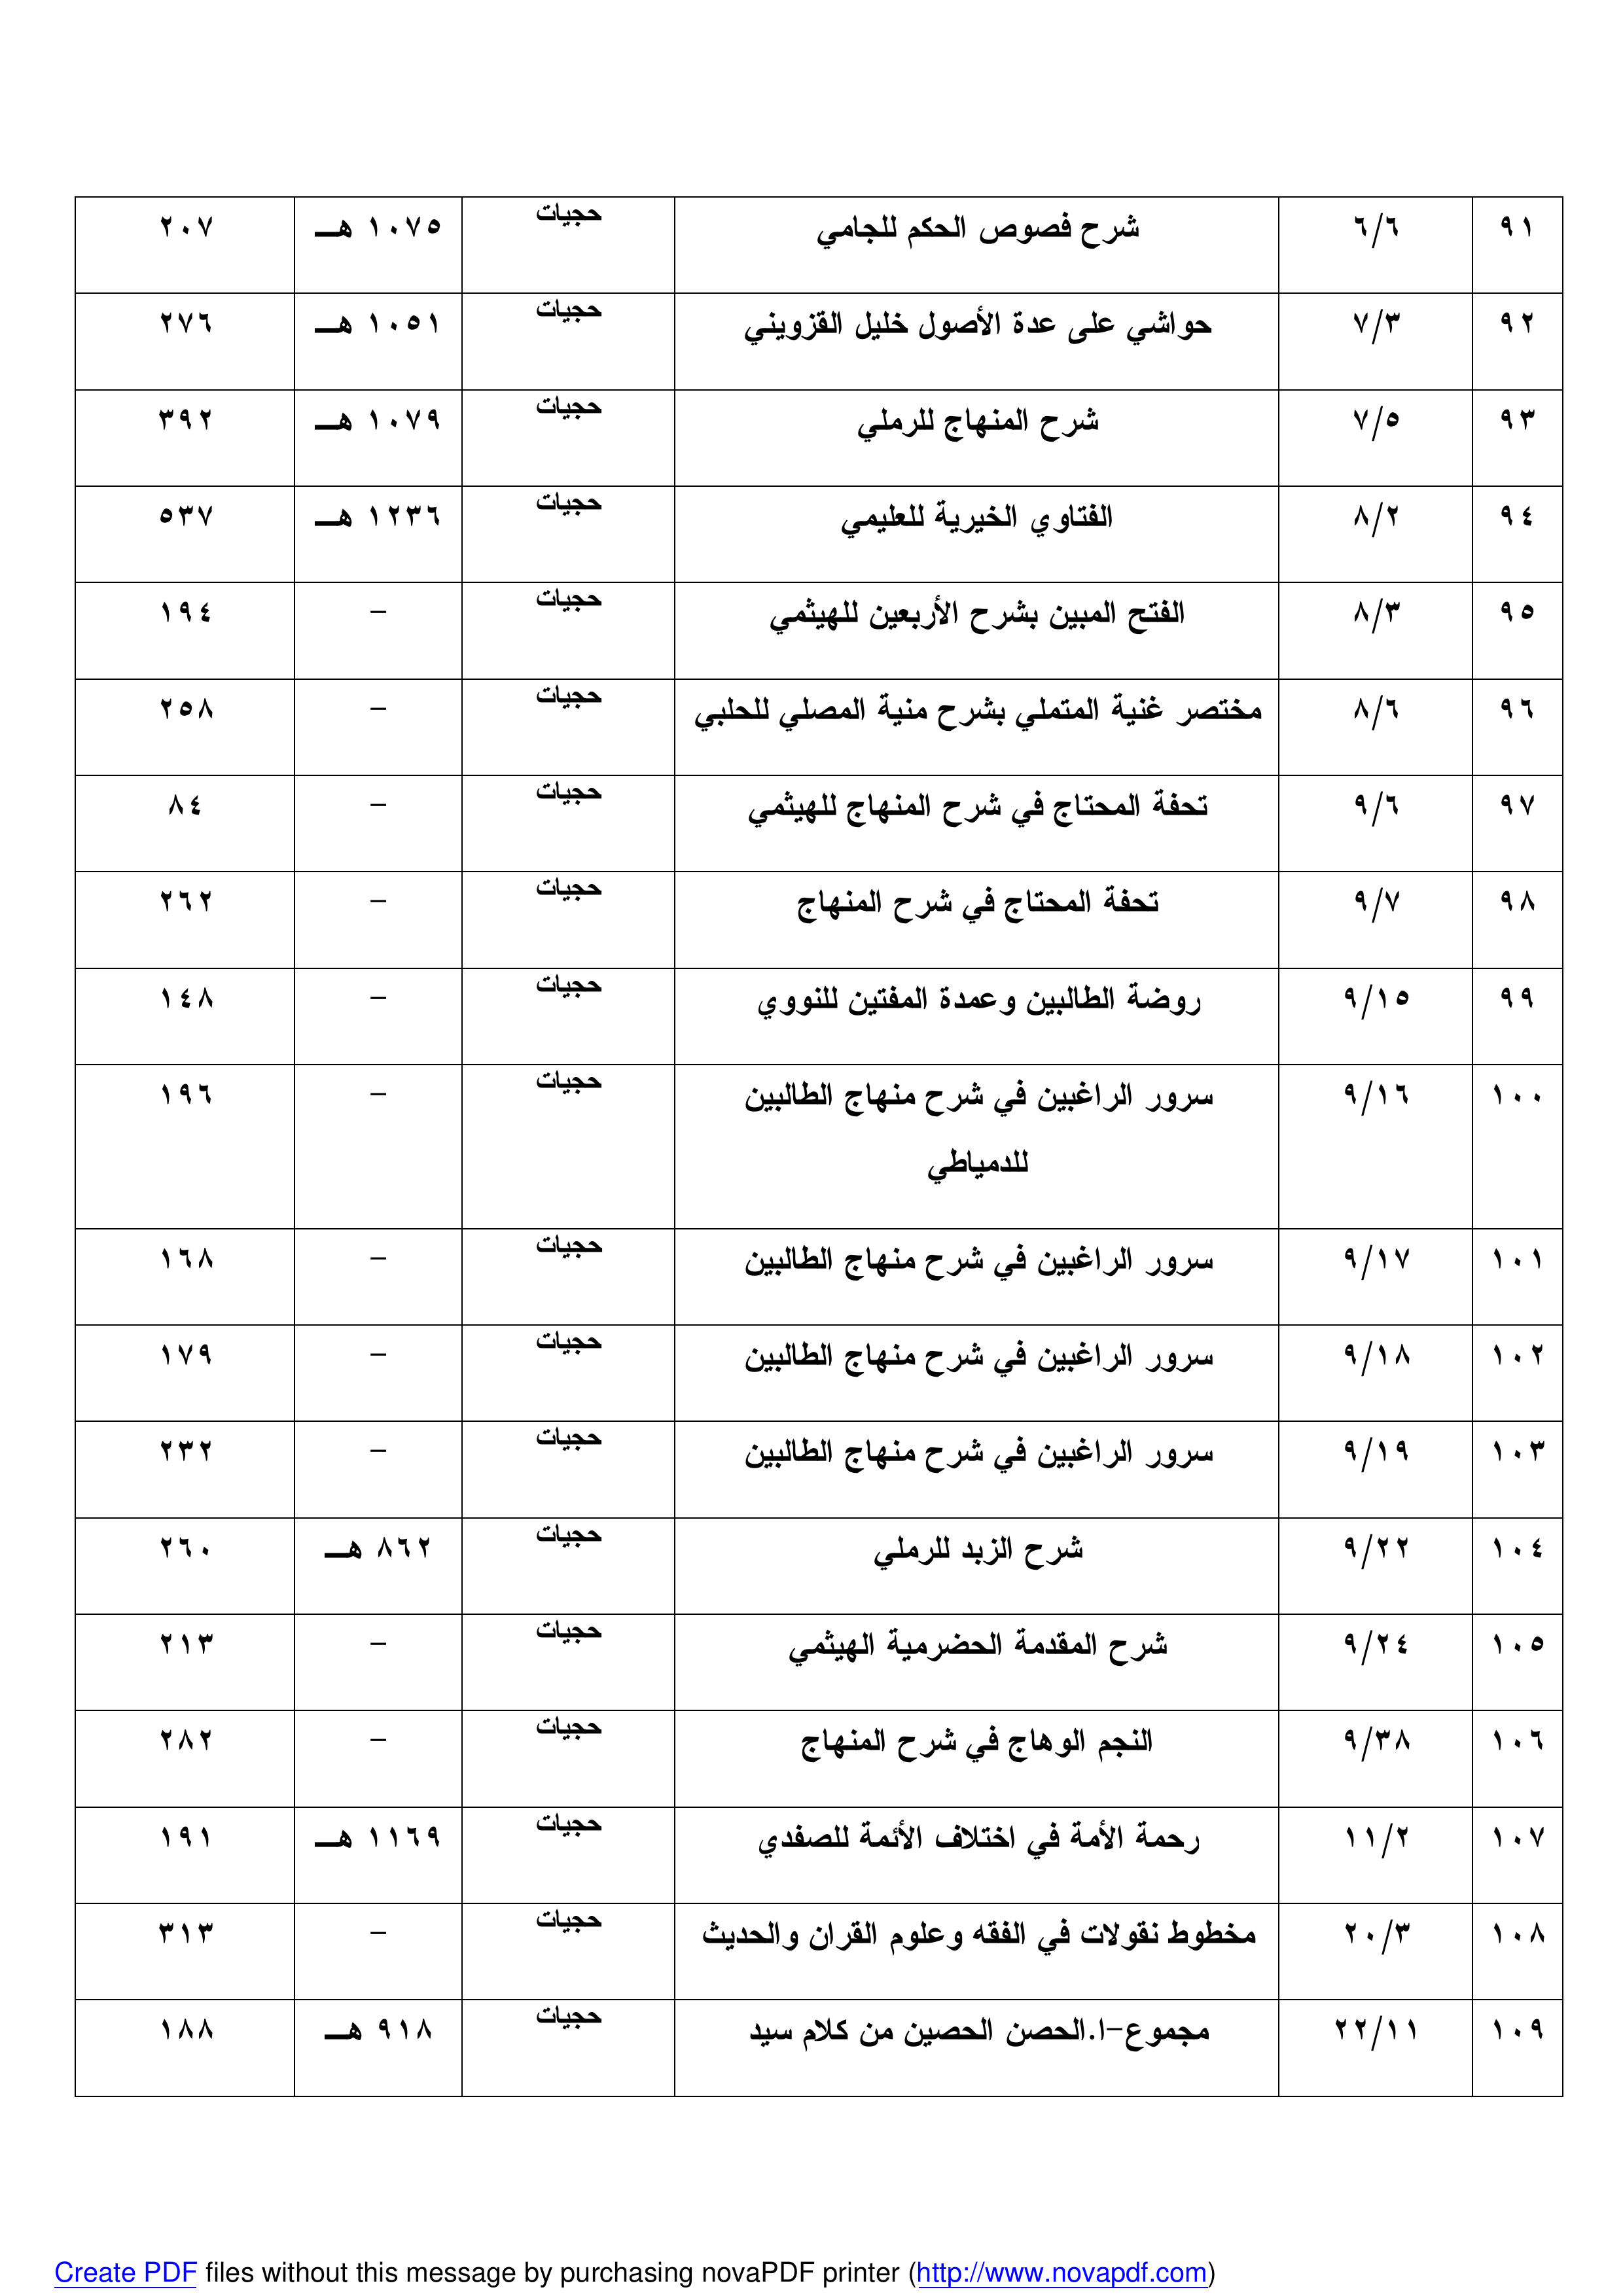 ٩١ ٦/٦ شرح فصوص الحكم للجامي حجيات ١٠٧٥ هـــ ٢٠٧
٩٢ ٧/٣ حواشي على عدة الأصول خليل القزويني حجيات ١٠٥١ هـــ ٢٧٦
٩٣ ٧/٥ شرح المنهاج للرملي حجيات ١٠٧٩ هـــ ٣٩٢
٩٤ ٨/٢ الفتاوي الخيرية للعليمي حجيات ١٢٣٦ هـــ ٥٣٧
٩٥ ٨/٣ الفتح المبين بشرح الأربعين للهيثمي حجيات – ١٩٤
٩٦ ٨/٦ مختصر غنية المتملي بشرح منية المصلي للحلبي حجيات – ٢٥٨
٩٧ ٩/٦ تحفة المحتاج في شرح المنهاج للهيثمي حجيات – ٨٤
٩٨ ٩/٧ تحفة المحتاج في شرح المنهاج حجيات – ٢٦٢
٩٩ ٩/١٥ روضة الطالبين وعمدة المفتين للنووي حجيات – ١٤٨
١٠٠ ٩/١٦ سرور الراغبين في شرح منهاج الطالبين حجيات – ١٩٦
للدمياطي
١٠١ ٩/١٧ سرور الراغبين في شرح منهاج الطالبين حجيات – ١٦٨
١٠٢ ٩/١٨ سرور الراغبين في شرح منهاج الطالبين حجيات – ١٧٩
١٠٣ ٩/١٩ سرور الراغبين في شرح منهاج الطالبين حجيات – ٢٣٢
١٠٤ ٩/٢٢ شرح الزبد للرملي حجيات ٨٦٢ هـــ ٢٦٠
١٠٥ ٩/٢٤ شرح المقدمة الحضرمية الهيثمي حجيات – ٢١٣
١٠٦ ٩/٣٨ النجم الوهاج في شرح المنهاج حجيات – ٢٨٢
١٠٧ ١١/٢ رحمة الأمة في اختلاف الأئمة للصفدي حجيات ١١٦٩ هـــ ١٩١
١٠٨ ٢٠/٣ مخطوط نقولات في الفقه وعلوم القران والحديث حجيات – ٣١٣
١٠٩ ٢٢/١١ مجموع–١.الحصن الحصين من كلام سيد حجيات ٩١٨ هـــ ١٨٨
Create PDF files without this message by purchasing novaPDF printer (http://www.novapdf.com)